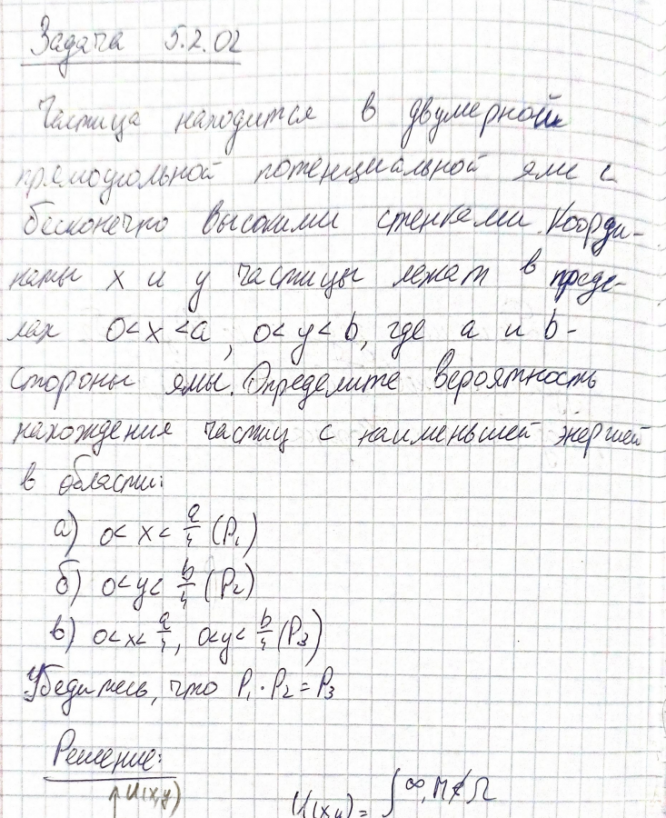 Задача 5.2.02
Частица находится в двумерной
прямоугольной потенциальной яме с
бесконечно высокими стенками. Коорди-
наты x и y частицы лежат в преде-
лах 0<x<a, 0<y<b, где a и b-
стороны ямы. Определите вероятность
нахождения частиц с наименьшей энергией
в области:
а) 0<x<a/4 (P₁)
б) 0<y<b/4 (P₂)
в) 0<x<a/4, 0<y<b/4 (P₃)
Убедитесь, что P₁·P₂=P₃
Решение:
U(x,y)
U(x,y)= { ∞, M∉Ω